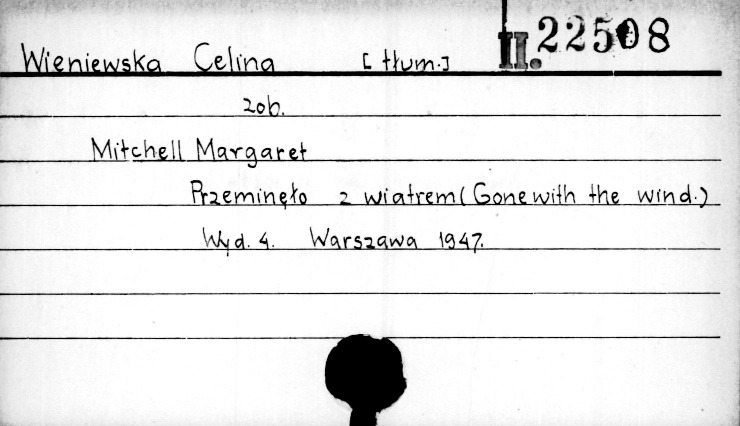 Wieniewska Celina [tłum.] II.22508
zob.
Mitchell Margaret
Przeminęło z wiatrem (Gone with the wind.)
Wyd. 4. Warszawa 1947.